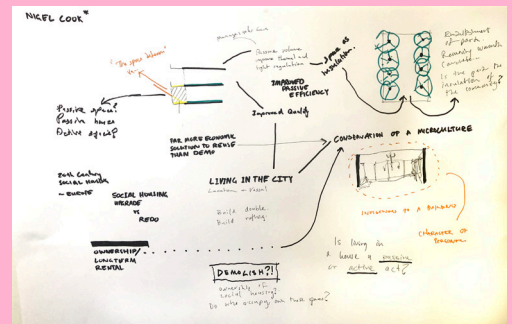 NIGEL COOK*
"The space between"
Passive space?
Passive house
Active space?
Reserve volume
improve thermal and
light regulation
IMPROVED
PASSIVE
EFFICIENCY
Improved Quality
Space as
insulation.
of park
Remedy
concrete
Is the park the
insulation of
the community?
FAR MORE ECONOMIC
SOLUTION TO REUSE
THAN DEMO
CONSERVATION OF A MICROCULTURE
20th Century
SOCIAL HOUSING
~ EUROPE
SOCIAL HOUSING
UPGRADE
VS
REDO
LIVING IN THE CITY
Build double
Build
OWNERSHIP/
LONGTERM
RENTAL
DEMOLISH?!
ownership of
social housing?
Do who occupy own their
TO A
CHARACTER OF
Is living in
a house a passive
or active act?